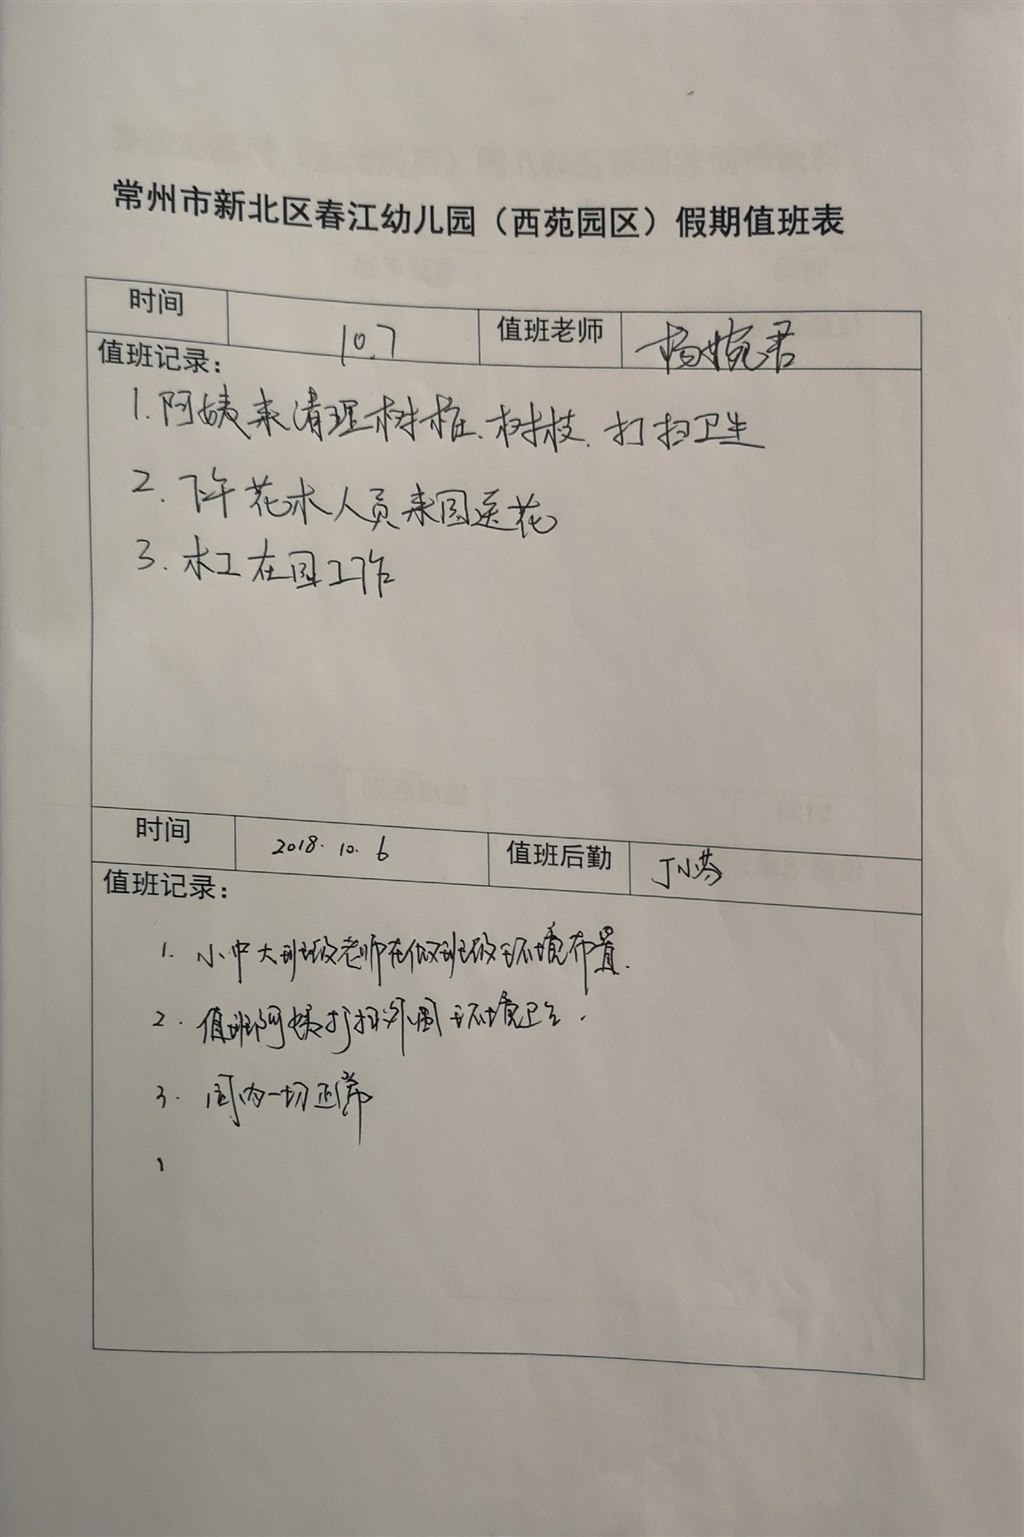 常州市新北区春江幼儿园（西苑园区）假期值班表
时间 10.7 值班老师 杨婉君
值班记录：
1. 阿姨来清理树桩、树枝、打扫卫生
2. 下午花木人员来园送花
3. 水工在园工作
时间 2018.10.6 值班后勤 丁小芬
值班记录：
1. 小中大班级老师在做班级环境布置.
2. 值班阿姨打扫外围环境卫生.
3. 园内一切正常